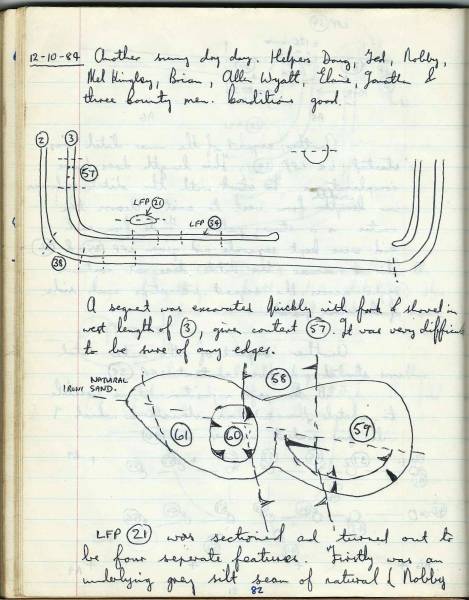 12-10-84 Another sunny dry day. Helpers Doug, Ted, Robby,
Mel Hingley, Brian, Allen Wyatt, Elaine, Jonathan &
three County men. Conditions good.
2 3
57
LFP 21
LFP 34
38
A segment was excavated quickly with fork & shovel in
west length of 3, given context 57. It was very difficult
to be sure of any edges.
58
NATURAL
IRONY SAND.
61 60 59
LFP 21 was sectioned and turned out to
be four separate features. Firstly was an
underlying grey silt seam of natural ( Robby
82